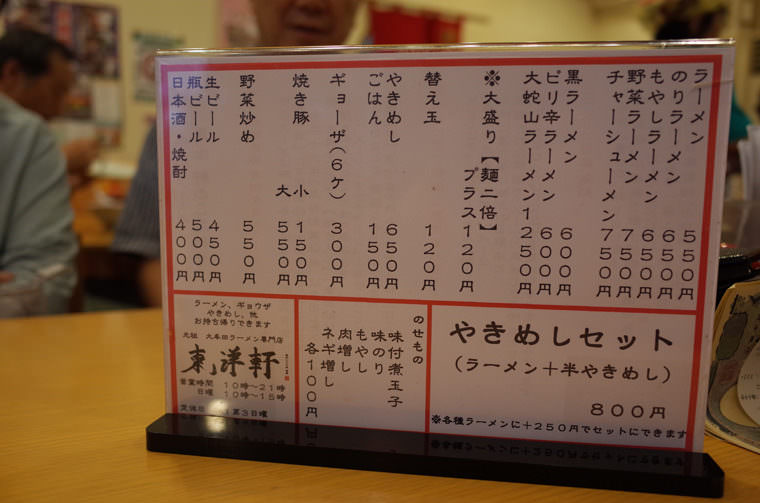 ラーメン 550円
のりラーメン 650円
もやしラーメン 650円
野菜ラーメン 750円
チャーシューメン 750円
黒ラーメン 600円
ピリ辛ラーメン 600円
大蛇山ラーメン 1250円
※大盛り【麺二倍】
プラス 120円
替え玉 120円
やきめし 650円
ごはん 150円
ギョーザ(6ケ) 300円
焼き豚 小 150円
大 550円
野菜炒め 550円
生ビール 450円
瓶ビール 500円
日本酒・焼酎 400円
やきめしセット
(ラーメン+半やきめし)
800円
※各種ラーメンに+250円でセットにできます
のせもの
味付煮玉子
味のり
もやし
肉増し
ネギ増し
各100円
ラーメン、ギョウザ
やきめし、他
お持ち帰りできます
元祖 大牟田ラーメン専門店
東洋軒
営業時間 10時~21時
日曜 10時~15時
定休日 第3日曜